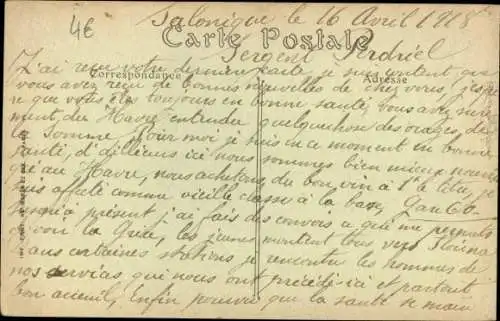 4€
Salonique le 16 Avril 1918
Carte Postale
Sergent Perdriel
J'ai reçu votre dernière carte je suis content que
Correspondance Adresse
vous avez reçu de bonnes nouvelles de chez vous, j'espè
re que vous êtes toujours en bonne santé, vous avez sure
ment, du Havre entendre quelquechose des orages, de
la Somme. Pour moi je suis en ce moment en bonne
santé, d'ailleurs ici nous sommes bien mieux nourris
qu'au Havre, nous achetons du bon vin à 1f le litre, je
suis affecté comme vieille classe à la base,
jusqu'à présent j'ai fais des convois ce qui me permets
de voir la Grèce, les jeunes montent tous vers Florina
dans certaines stations je rencontre les hommes de
nos services qui nous ont précédé ici et partout
bon accueil, Enfin pourvu que la santé se main